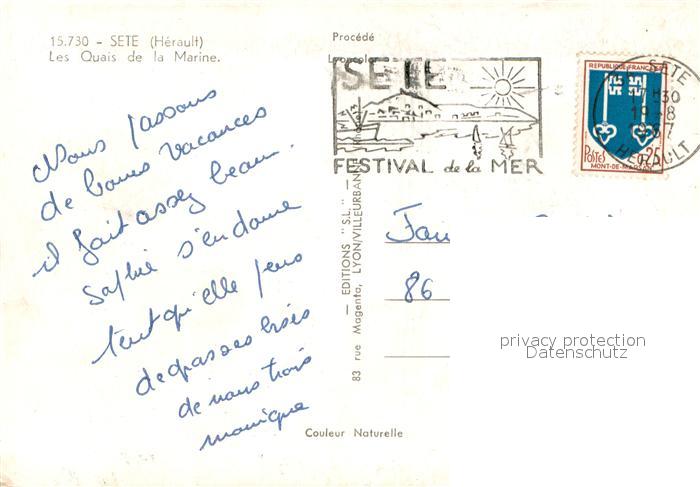 15.730 - SETE (Hérault)
Les Quais de la Marine.
Nous passons
de bonnes vacances
il fait assez beau.
Sophie s'en donne
tant qu'elle peux
de grosses bises
de nous trois
monique
Procédé
Lyoncolor
SETE
FESTIVAL de la MER
SETE
17H30
19-8
HERAULT
REPUBLIQUE FRANÇAISE
POSTES
25
MONT-DE-MARSAN
EDITIONS "S.L."
83 rue Magenta, LYON/VILLEURBANNE
Fam
86
privacy protection
Datenschutz
Couleur Naturelle